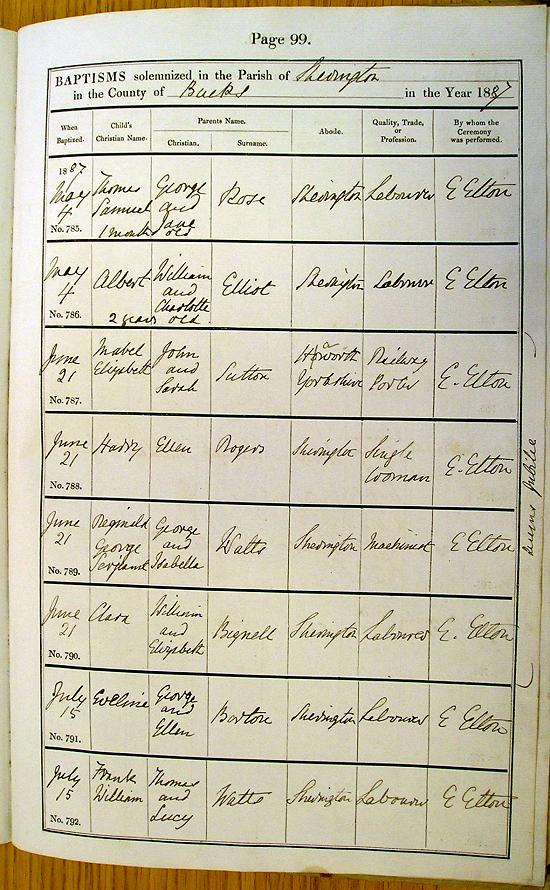 Page 99.
BAPTISMS solemnized in the Parish of Sherington
in the County of Bucks in the Year 1887
When Baptized.
Child's Christian Name.
Parents Name.
Christian.
Surname.
Abode.
Quality, Trade, or Profession.
By whom the Ceremony was performed.
1887
May 4
No. 785.
Thomas Samuel
1 month old
George and Jane
Rose
Sherington
Labourer
E Elton
May 4
No. 786.
Albert
2 years old.
William and Charlotte
Elliot
Sherington
Labourer
E Elton
June 21
No. 787.
Mabel Elizabeth
John and Sarah
Sutton
Haworth Yorkshire
Railway Porter
E. Elton
June 21
No. 788.
Harry
Ellen
Rogers
Sherington
Single Woman
E. Elton
June 21
No. 789.
Reginald George Serjeant
George and Isabella
Watts
Sherington
Machinist
E Elton
June 21
No. 790.
Clara
William and Elizabeth
Bignell
Sherington
Labourer
E. Elton
July 15
No. 791.
Eveline
George and Ellen
Barton
Sherington
Labourer
E Elton
July 15
No. 792.
Frank William
Thomas and Lucy
Watts
Sherington
Labourer
E Elton
Queens Jubilee